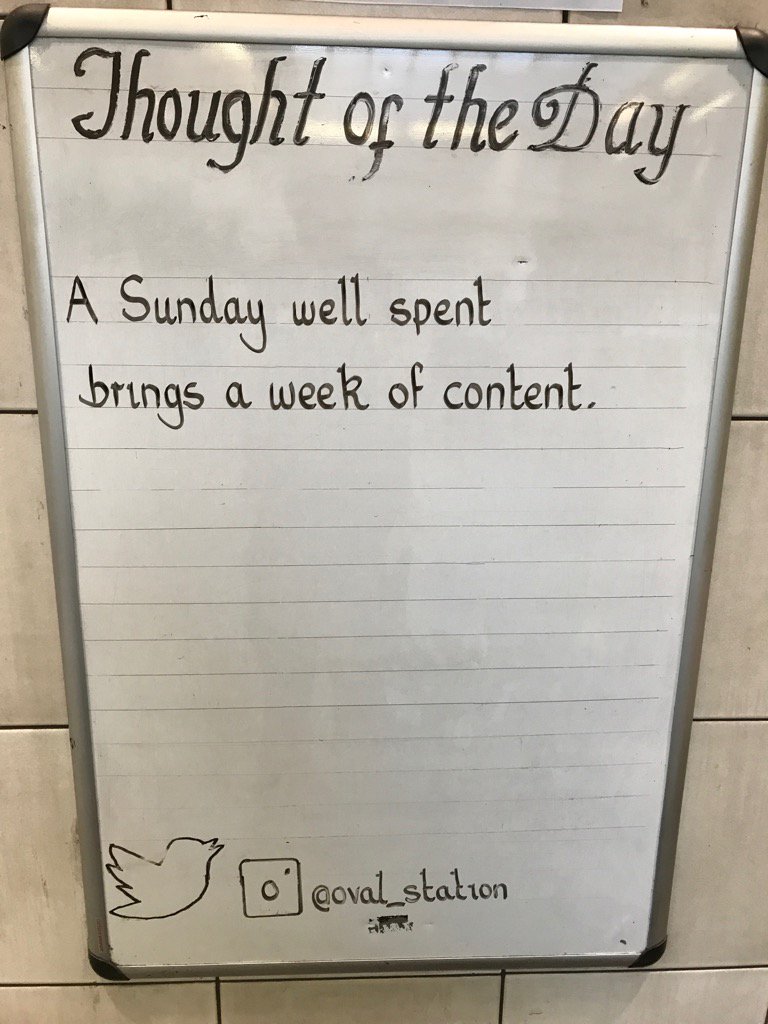 Thought of the Day
A Sunday well spent
brings a week of content.
@oval_station